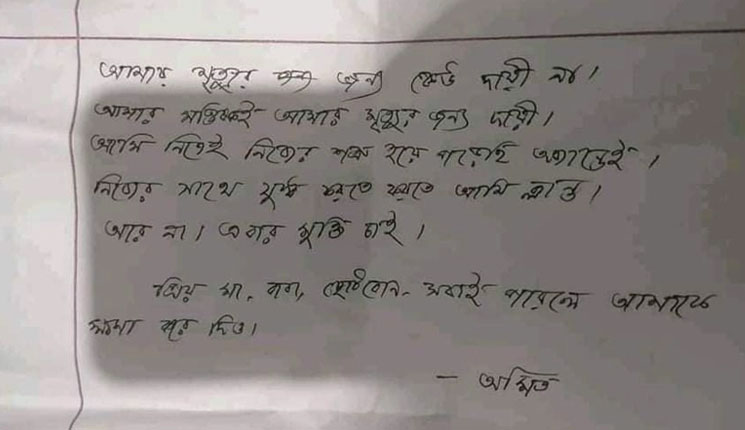 আমার মৃত্যুর জন্য কেউ দায়ী না।
আমার মস্তিষ্কই আমার মৃত্যুর জন্য দায়ী।
আমি নিজেই নিজের শত্রু হয়ে পড়েছি অজান্তেই।
নিজের সাথে যুদ্ধ করতে করতে আমি ক্লান্ত।
আর না। এবার মুক্তি চাই।
প্রিয় মা, বাবা, ছোটবোন- সবাই পারলে আমাকে
ক্ষমা করে দিও।
- অমিত